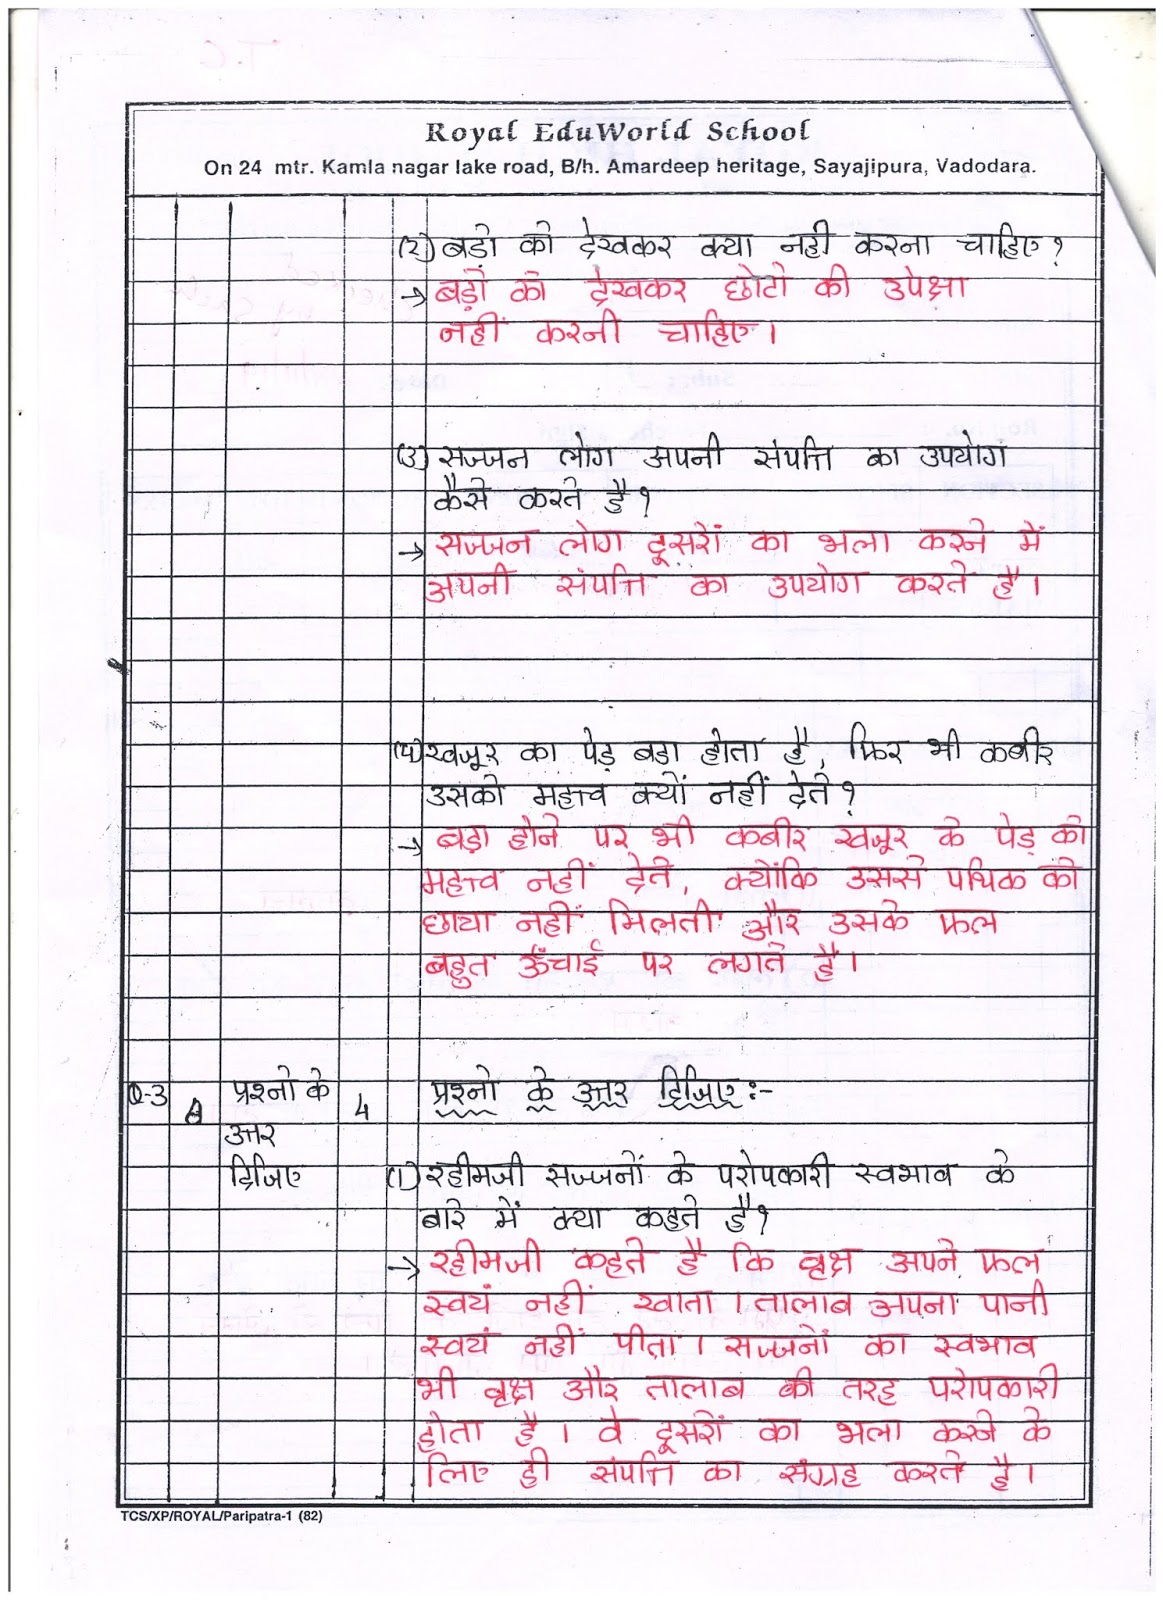 Royal EduWorld School
On 24 mtr. Kamla nagar lake road, B/h. Amardeep heritage, Sayajipura, Vadodara.
(२) बड़ो को देखकर क्या नही करना चाहिए?
→ बड़ो को देखकर छोटो की उपेक्षा
नहीं करनी चाहिए।
(3) सज्जन लोग अपनी संपत्ति का उपयोग
कैसे करते है?
→ सज्जन लोग दूसरों का भला करने में
अपनी संपत्ति का उपयोग करते है।
(४) खजूर का पेड़ बडा होता है, फिर भी कबीर
उसको महत्त्व क्यों नहीं देते?
→ बड़ा होने पर भी कबीर खजूर के पेड़ को
महत्त्व नहीं देते, क्योंकि उससे पथिक को
छाया नहीं मिलती और उसके फल
बहुत ऊँचाई पर लगते है।
Q-3 A प्रश्नो के 4 प्रश्नो के उत्तर दिजिए :-
उत्तर
दिजिए (1) रहीमजी सज्जनों के परोपकारी स्वभाव के
बारे में क्या कहते है?
→ रहीमजी कहते है कि वृक्ष अपने फल
स्वयं नहीं खाता। तालाब अपना पानी
स्वयं नहीं पीता। सज्जनों का स्वभाव
भी वृक्ष और तालाब की तरह परोपकारी
होता है। वे दूसरों का भला करने के
लिए ही संपत्ति का संग्रह करते है।
TCS/XP/ROYAL/Paripatra-1 (82)